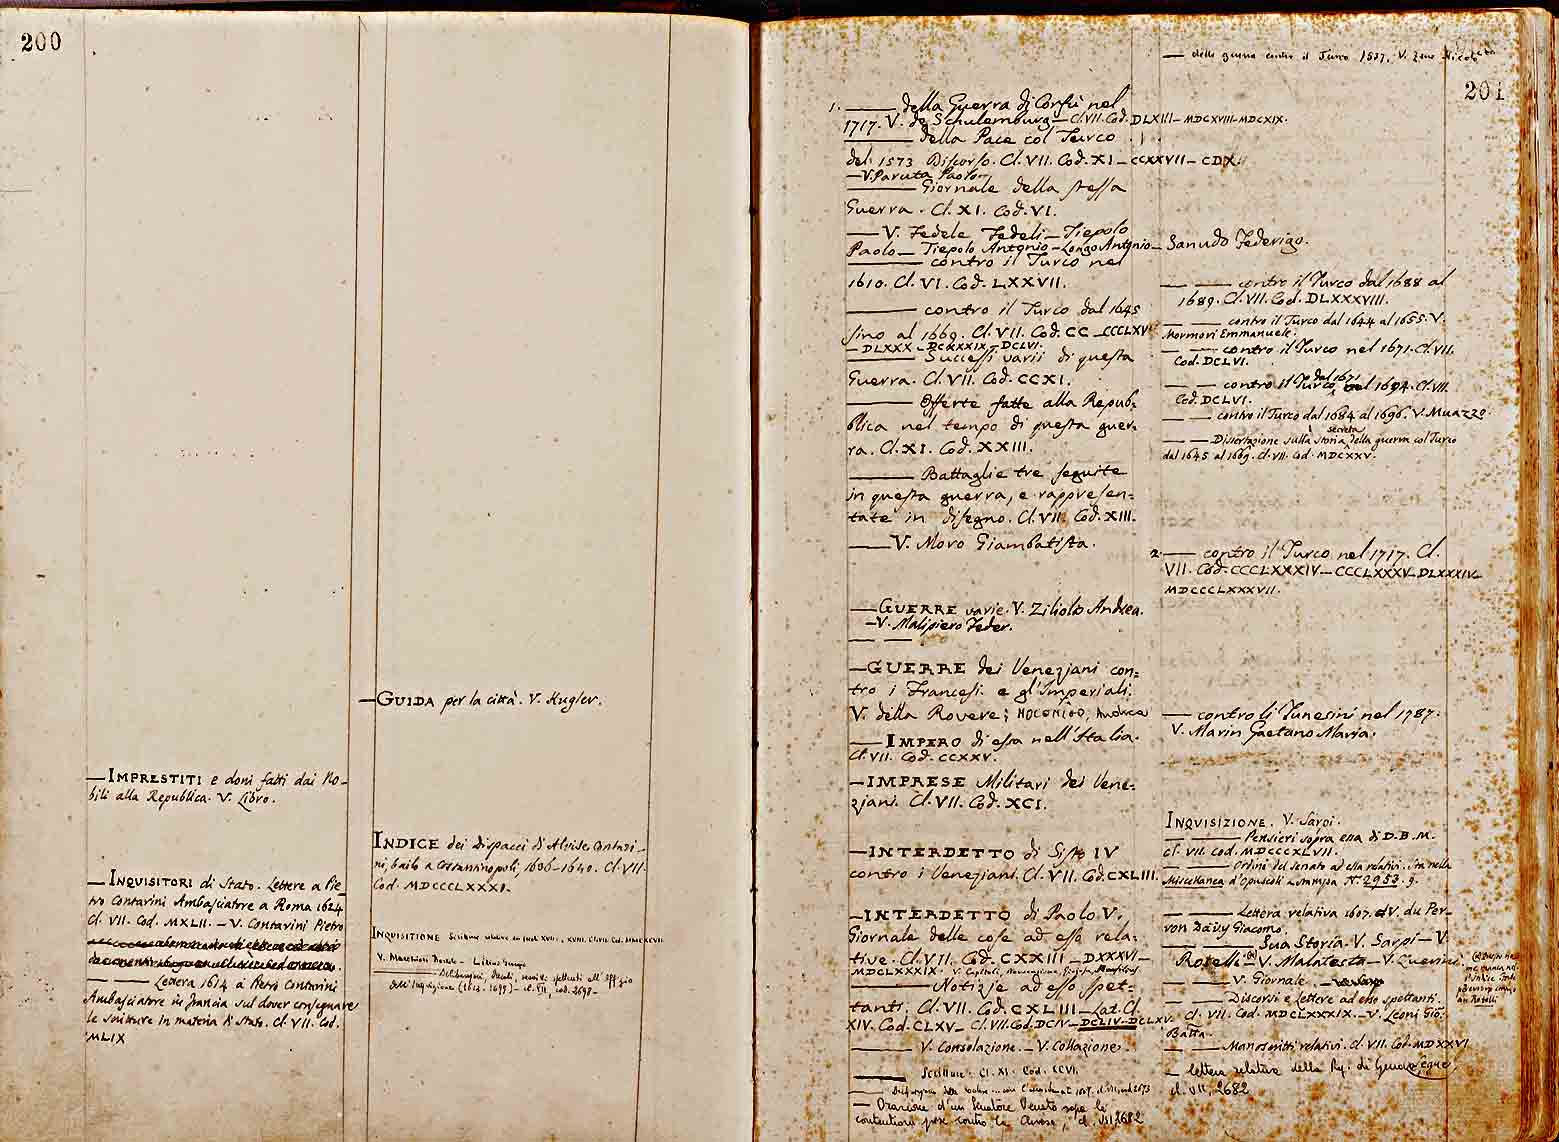 200
— GUIDA per la città. V. Kugler.
— IMPRESTITI e doni fatti dai No-
bili alla Republica. V. Libro.
INDICE dei dispacci di Alvise Contari-
ni, bailo a Costantinopoli, 1636-1640. Cl. VII.
Cod. MDCCCCLXXXI.
— INQUISITORI di Stato. Lettere a Pie-
tro Contarini Ambasciatore a Roma 1624
Cl. VII. Cod. MXLII. — V. Contarini Pietro
— Lettera 1614 a Pietro Contarini
Ambasciatore in francia sul dover consegnare
le scritture in materia di Stato. Cl. VII. Cod.
MLIX
INQUISITIONE Scritture relative
dell'Inquisizione (1613-1699) - cl. VII, cod. 2698 -
— della guerra contro il Turco 1537. V. Zeno Nicolò
201
1. — della Guerra di Corfù nel
1717. V. de Schulemburg — Cl. VII. Cod. DLXIII — MDCXVIII — MDCXIX.
— della Pace col Turco
del 1573 Discorso. Cl. VII. Cod. XI — CCXXVII — CDX.
— V. Paruta Paolo —
— Giornale della stessa
Guerra. Cl. XI. Cod. VI.
— V. Fedele Fedeli — Tiepolo
Paolo — Tiepolo Antonio — Longo Antonio — Sanudo Federigo.
— contro il Turco nel
1610. Cl. VI. Cod. LXXVII.
— contro il Turco dal 1645
sino al 1669. Cl. VII. Cod. CC — CCCLXV
— DLXXX — DCXXXIX — DCLVI.
— Successi varii di questa
Guerra. Cl. VII. Cod. CCXI.
— Offerte fatte alla Repub-
blica nel tempo di questa guer-
ra. Cl. XI. Cod. XXIII.
— Battaglie tre seguite
in questa guerra, e rappresen-
tate in disegno. Cl. VII. Cod. XIII.
— V. Moro Giambatista.
— GUERRE varie. V. Ziliolo Andrea.
— V. Malipiero Feder.
— GUERRE dei Veneziani con-
tro i Francesi e gl'Imperiali.
V. della Rovere; MOCENIGO, Andrea
— IMPERO di essa nell'Italia.
Cl. VII. Cod. CCXXV.
— IMPRESE Militari dei Vene-
ziani. Cl. VII. Cod. XCI.
— INTERDETTO di Sisto IV
contro i Veneziani. Cl. VII. Cod. CXLIII.
— INTERDETTO di Paolo V.
Giornale delle cose ad esso rela-
tive. Cl. VII. Cod. CXXIII — DXXXVI —
MDCLXXXIX.
— Notizie ad esso spet-
tanti. Cl. VII. Cod. CXLIII — Lat. Cl.
XIV. Cod. CLXV — Cl. VII. Cod. DCIV — DCLIV — DCLXV.
— V. Consolazione. — V. Collazione.
— Scritture. Cl. XI. Cod. CCVI.
— Orazione d'un Senatore Veneto sopra le
cl. VII, 2682
— — contro il Turco dal 1688 al
1689. Cl. VII. Cod. DLXXXVIII.
— — contro il Turco dal 1644 al 1655. V.
Mormori Emmanuele.
— — contro il Turco nel 1671. Cl. VII.
Cod. DCLVI.
— — contro il Turco dal 1671 al 1694. Cl. VII.
Cod. DCLVI.
— — contro il Turco dal 1684 al 1696. V. Muazzo.
— — Dissertazione sulla storia secreta della guerra col Turco
dal 1645 al 1669. Cl. VII. Cod. MDCXXV.
2. — contro il Turco nel 1717. Cl.
VII. Cod. CCCCLXXXIV — CCCLXXXV — DLXXXIV —
MDCCCLXXXVII.
— contro li Tunesini nel 1787.
V. Marin Gaetano Maria.
INQUISIZIONE. V. Sarpi.
— Pensieri sopra essa di D. B. M.
Cl. VII. Cod. MDCCCXLVII.
— Ordini del Senato ad essa relativi. Sta nella
Miscellanea d'Opuscoli a stampa N.° 2953. 9.
— Lettera relativa 1607. V. du Per-
ron Davy Giacomo.
— Sua Storia. V. Sarpi — V.
Roselli (a) — V. Malatesta — V. Querini.
— — V. Giornale.
— — Discorsi e Lettere ad esso spettanti.
Cl. VII. Cod. MDCLXXXIX. — V. Leoni Gio:
Batta.
— — Manoscritti relativi. Cl. VII. Cod. MDXXVI
— lettera relativa della Rep. di Genova, segue,
cl. VII, 2682